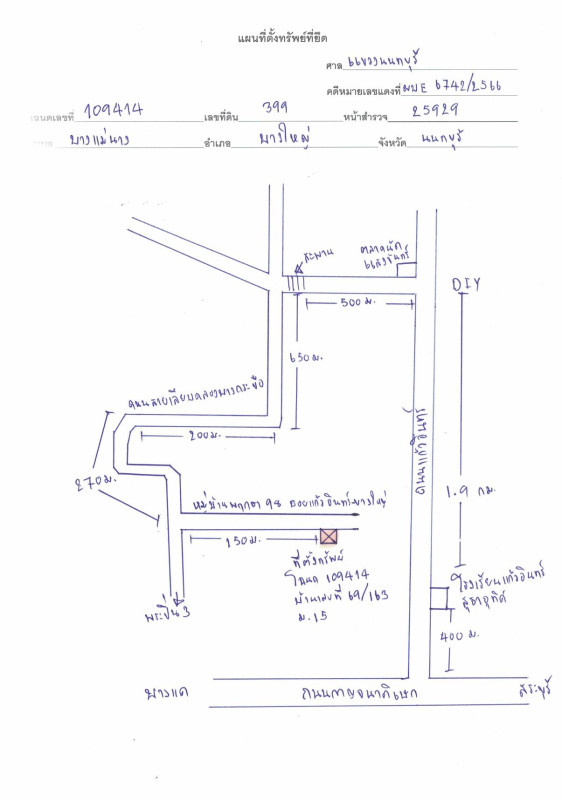 แผนที่ตั้งทรัพย์ที่ยึด
ศาล แขวงนนทบุรี
คดีหมายเลขแดงที่ ผบE 6742/2566
โฉนดเลขที่ 109414 เลขที่ดิน 399 หน้าสำรวจ 25929
บางแม่นาง อำเภอ บางใหญ่ จังหวัด นนทบุรี
สะพาน
ตลาดนัด
แสงจันทร์
DIY
500 ม.
650 ม.
ถนนสายเลียบคลองบางกระบือ
200 ม.
270 ม.
ถนนแก้วอินทร์
1.9 กม.
หมู่บ้านพฤกษา 98 ซอยแก้วอินทร์-บางใหญ่
150 ม.
ที่ตั้งทรัพย์
โฉนด 109414
บ้านเลขที่ 69/163
ม.15
พระปิ่น 3
โรงเรียนแก้วอินทร์
สุธาอุทิศ
400 ม.
บางแค ถนนกาญจนาภิเษก สระบุรี